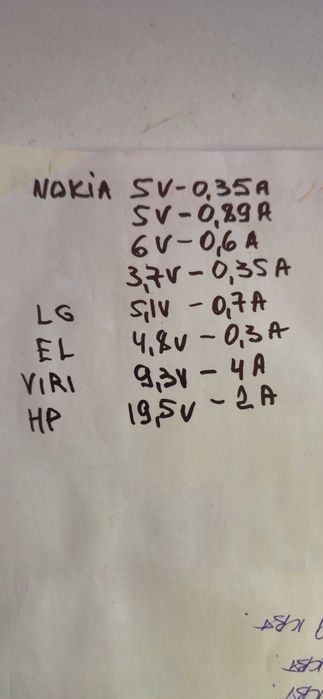 NOKIA 5V-0,35A
5V-0,89A
6V-0,6A
3,7V-0,35A
LG 5,1V-0,7A
EL 4,8V-0,3A
VIRI 9,3V-4A
HP 19,5V-2A